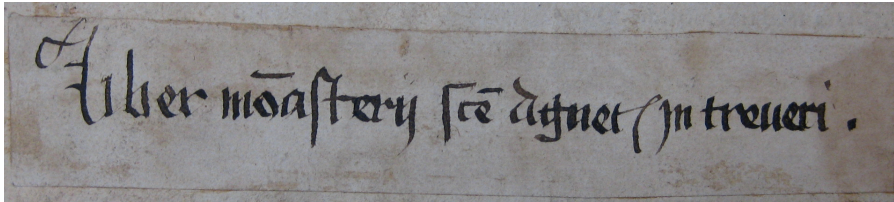 Liber mōasterij scē Agnet˜ in treueri .